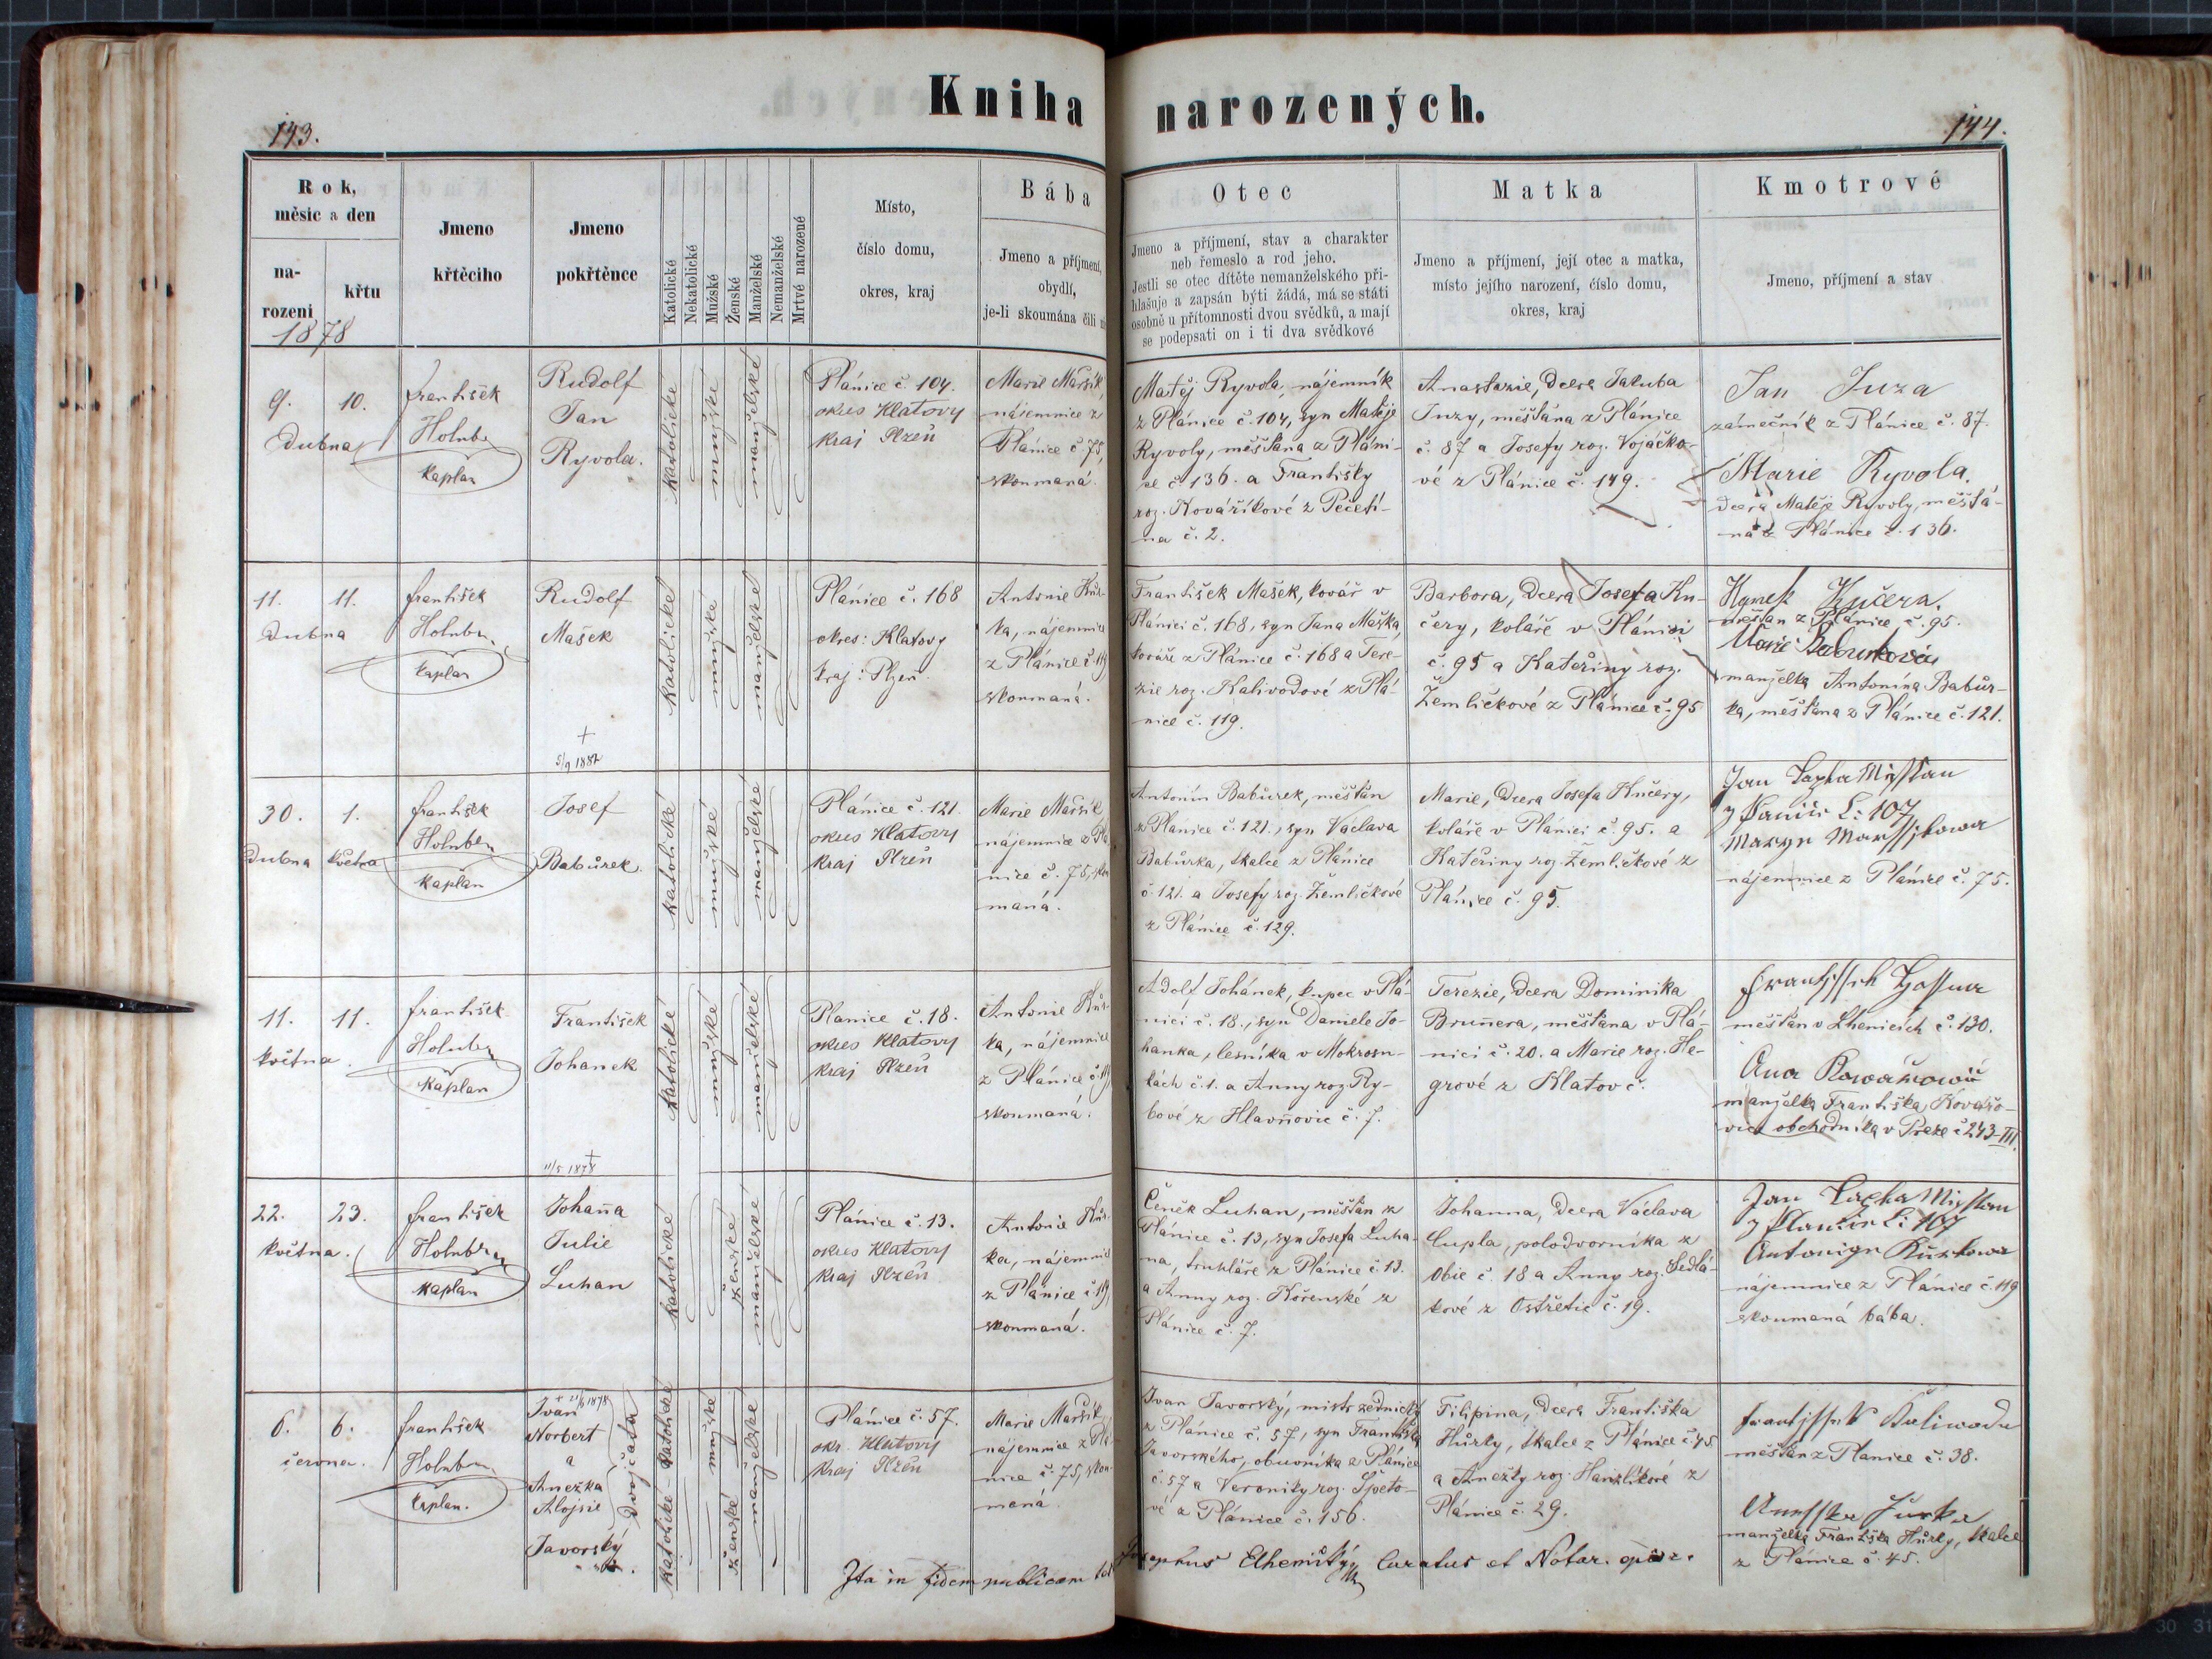 Kniha narozených.
143.
144.
Rok,
měsíc a den
na-
rozeni
křtu
1878
Jmeno
křtěcího
Jmeno
pokřtěnce
Katolické
Nekatolické
Mužské
Ženské
Manželské
Nemanželské
Mrtvé narozené
Místo,
číslo domu,
okres, kraj
Bába
Jmeno a příjmení,
obydlí,
je-li skoumána čili
Otec
Jmeno a příjmení, stav a charakter
neb řemeslo a rod jeho.
Jestli se otec dítěte nemanželského při-
hlašuje a zapsán býti žádá, má se státi
osobně u přítomnosti dvou svědků, a mají
se podepsati on i ti dva svědkové
Matka
Jmeno a příjmení, její otec a matka,
místo jejího narození, číslo domu,
okres, kraj
Kmotrové
Jmeno, příjmení a stav
9. 10.
Dubna
František
Holub
kaplan
Rudolf
Jan
Ryvola.
katolické
mužské
manželské
Plánice č. 104.
okres Klatovy
kraj Plzeň
Marie Maršík,
nájemnice z
Plánice č. 75,
skoumaná.
Matěj Ryvola, nájemník
z Plánice č. 104, syn Matěje
Ryvoly, měšťana z Pláni-
ce č. 136. a Františky
roz. Kováříkové z Pečetí-
na č. 2.
Anastazie, dcera Jakuba
Juzy, měšťana z Plánice
č. 87 a Josefy roz. Vojáčko-
vé z Plánice č. 149.
Jan Juza
zámečník z Plánice č. 87.
Marie Ryvola.
dcera Matěje Ryvoly, měšťa-
na z Plánice č. 136.
11. 11.
Dubna
František
Holub
kaplan
Rudolf
Mašek
+
5/9 1882
katolické
mužské
manželské
Plánice č. 168
okres: Klatovy
kraj: Plzeň.
Antonie Kůr-
ka, nájemnice
z Plánice č. 119
skoumaná.
František Mašek, kovář v
Plánici č. 168, syn Jana Maška,
kováře z Plánice č. 168 a Tere-
zie roz. Kalivodové z Plá-
nice č. 119.
Barbora, dcera Josefa Ku-
čery, koláře v Plánici
č. 95 a Kateřiny roz.
Žemličkové z Plánice č. 95
Kučera.
měšťan z Plánice č. 95.
Marie Baburková
manželka Antonína Babůr-
ka, měšťana z Plánice č. 121.
30. 1.
Dubna května
František
Holub
kaplan
Josef
Babůrek.
katolické
mužské
manželské
Plánice č. 121.
okres Klatovy
kraj Plzeň
Marie Maršík
nájemnice z Plá-
nice č. 75, skou-
maná.
Antonín Babůrek, měšťan
z Plánice č. 121., syn Václava
Babůrka, tkalce z Plánice
č. 121. a Josefy roz. Žemličkové
z Plánice č. 129.
Marie, dcera Josefa Kučery,
koláře v Plánici č. 95. a
Kateřiny roz. Žemličkové z
Plánice č. 95.
Jan
107
nájemnice z Plánice č. 75.
11. 11.
května.
František
Holub
kaplan
František
Johanek
+
11/5 1878
katolické
mužské
manželské
Plánice č. 18.
okres Klatovy
kraj Plzeň
Antonie Kůr-
ka, nájemnice
z Plánice č. 119
skoumaná.
Adolf Johánek, kupec v Plá-
nici č. 18., syn Daniele Jo-
hanka, lesníka v Mokrosu-
kách č. 1. a Anny roz. Ry-
bové z Hlavňovic č. 7.
Terezie, dcera Dominika
Bruňera, měšťana v Plá-
nici č. 20. a Marie roz. He-
grové z Klatov č.
měšťan v Lhenicích č. 130.
Ana Kowářowic
manželka Františka Kovářo-
vice obchodníka v Praze č. 243-III.
22. 23.
května.
František
Holub
kaplan
Johaňa
Julie
Luhan
katolické
ženské
manželské
Plánice č. 13.
okres Klatovy
kraj Plzeň
Antonie Kůr-
ka, nájemnice
z Plánice č. 119,
skoumaná.
Čeněk Luhan, měšťan z
Plánice č. 13, syn Josefa Luha-
na, truhláře z Plánice č. 13.
a Anny roz. Kořenské z
Plánice č. 7.
Johanna, dcera Václava
Cupla, polodvorníka z
Obic č. 18 a Anny roz. Sedlá-
kové z Ostřetic č. 19.
Jan
107
nájemnice z Plánice č. 119
skoumaná bába.
6. 6.
června.
František
Holub
kaplan.
+ 21/6 1878
Ivan
Norbert
a
Anežka
Alojsie
Javorský
dvojčata
katolické katolické
ženské mužské
manželské
Plánice č. 57.
okr. Klatovy
kraj Plzeň
Marie Maršík
nájemnice z Plá-
nice č. 75, skou-
maná.
Ivan Javorský, mistr zednický
z Plánice č. 57, syn Františka
Javorského, obuvníka z Plánice
č. 57 a Veroniky roz. Špeto-
vé z Plánice č. 156.
Filipina, dcera Františka
Hůrky, tkalce z Plánice č. 45
a Anežky roz. Hanzlíkové z
Plánice č. 29.
měšťan z Plánice č. 38.
manželka Františka Hůrky, tkalce
z Plánice č. 45.
Ita in fidem publicam
Josephus Elhenický Curatus et Notar.